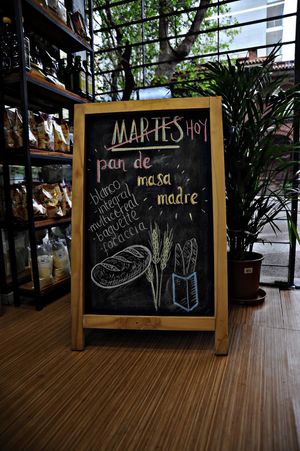 MARTES HOY
pan de
masa
madre
blanco
integral
multicereal
baguette
focaccia